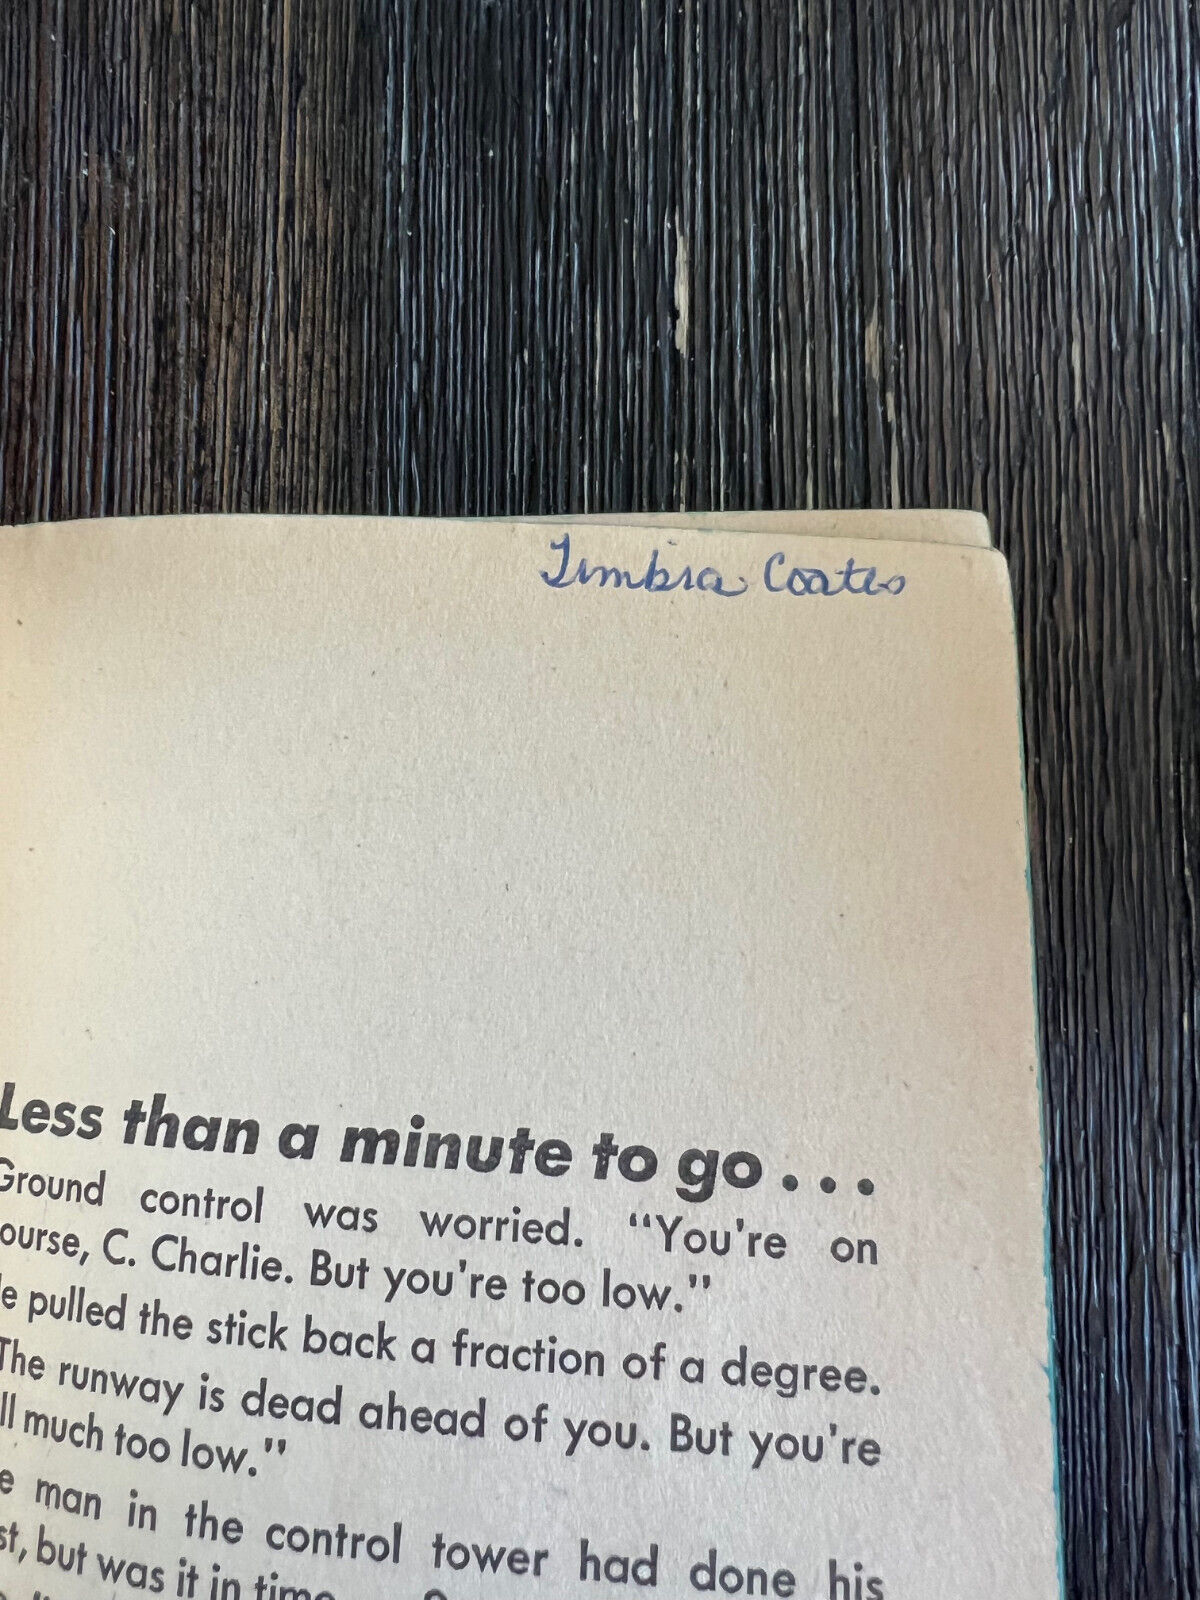 Timbra Coates
Less than a minute to go . . .
Ground control was worried. "You're on
ourse, C. Charlie. But you're too low."
e pulled the stick back a fraction of a degree.
The runway is dead ahead of you. But you're
ll much too low."
e man in the control tower had done his
st, but was it in time